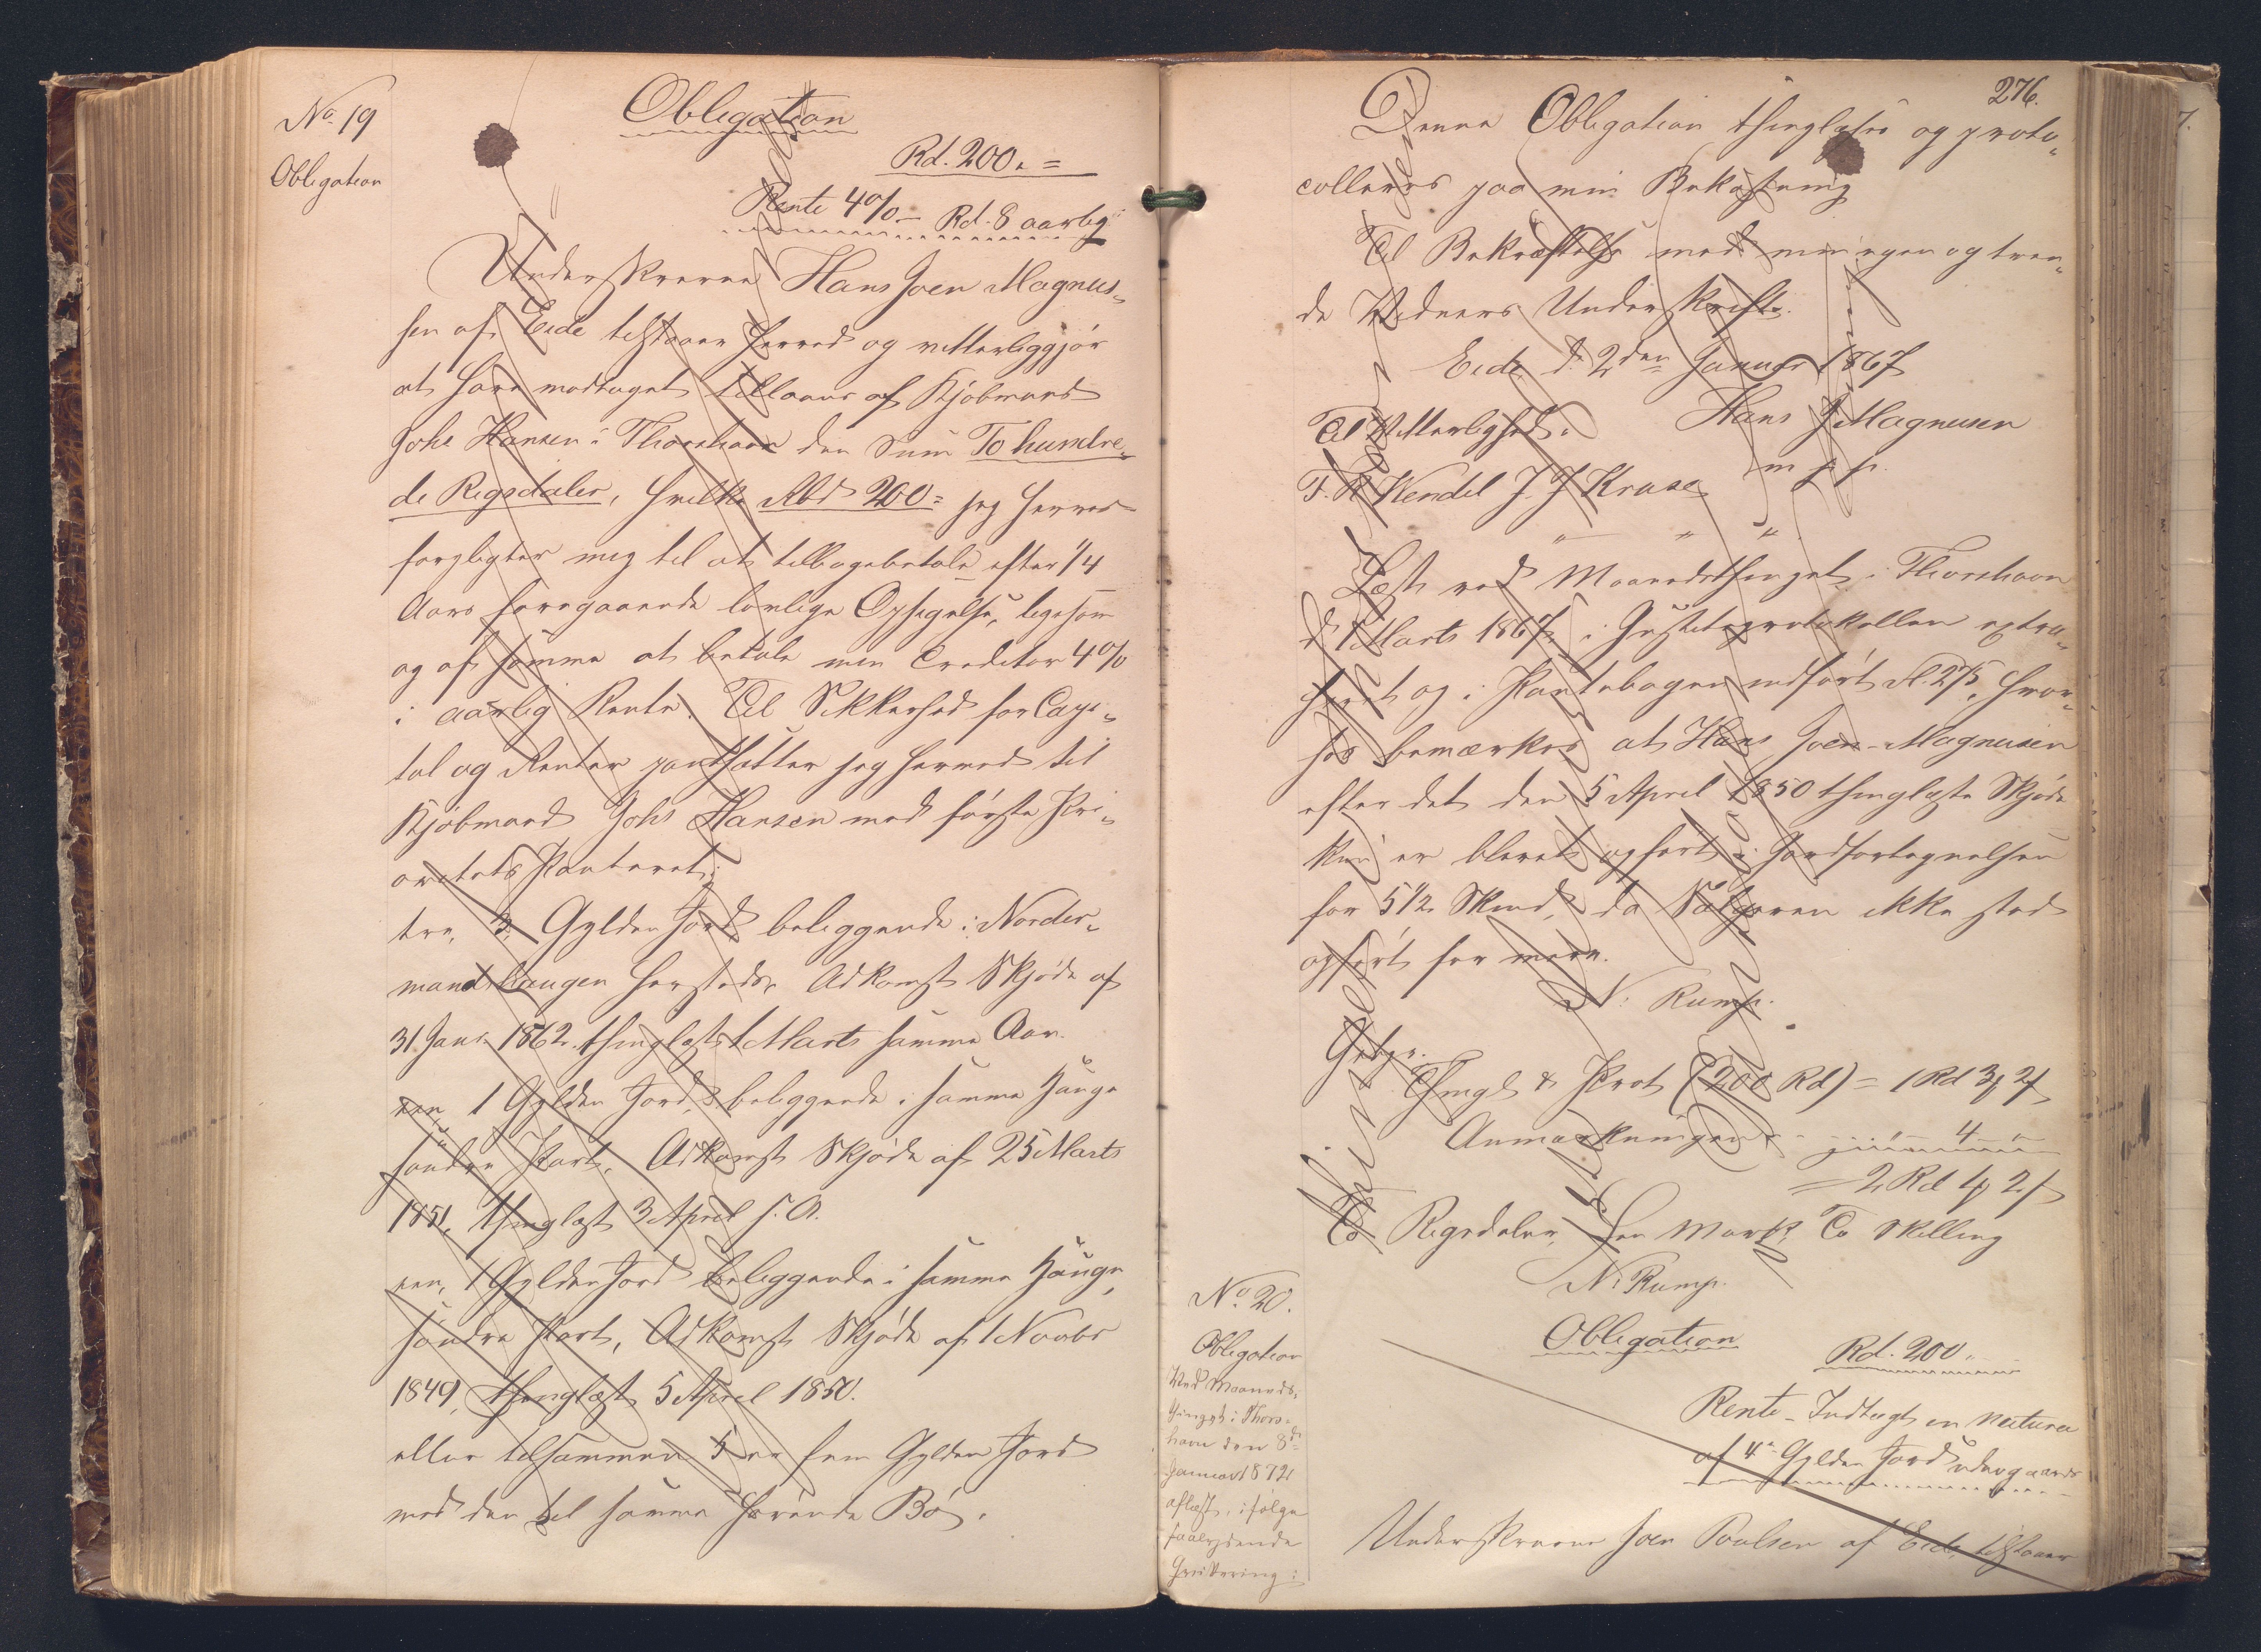 No 19
Obligation
Obligation
Rd. 200 " =
Rente 4% – Rd. 8 aarlig
Underskrevne Hans Joen Magnus„
sen af Eide tilstaaer herved og vitterliggjør
at have modtaget tillaans af Kjøbmand
Johs Hansen i Thorshavn den Sum To hundre„
de Rigsdaler, hvilke Rbd 200 = jeg herved
forpligter mig til at tilbagebetale efter 1/4
Aars foregaaende lovlige Opsigelse, ligesom
og af samme at betale min Creditor 4%
i aarlig Rente. Til Sikkerhed for Capi„
tal og Renter pantsætter jeg herved til
Kjøbmand Johs Hansen med første Pri„
oritets Panteret:
tre, 3, Gylden Jord beliggende i Norder„
mandshaugen hersteds, Adkomst Skjøde af
31. Janr 1862. thinglæst 1 Marts samme Aar.
een, 1 Gylden Jord, beliggende i samme Hauge
søndre Part, Adkomst Skjøde af 25 Marts
1851, thinglæst 3 April s. A.
een, 1 Gylden Jord beliggende i samme Hauge,
søndre Part, Adkomst Skjøde af 1 Novbr
1849, thinglæst 5 April 1850.
eller tilsammen 5 er fem Gylden Jord
med den til samme hørende Bø.
276.
Denne Obligation thinglæses og proto„
colleres paa min Bekostning
Til Bekræftelse med min egen og tven„
de Vidners Underskrift.
Eide d. 2den Januar 1867
Til Vitterlighed: Hans J Magnusen
F. R Wendel J. J Kruse m. p. p.
" " "
Læst ved Maanedsthinget i Thorshavn
d. 1 Marts 1867, i Justitsprotokollen extra„
heret og i Pantebogen indført Fl. 275, hvor„
hos bemærkes at Hans Joen Magnusen
efter det den 5 April 1850 thinglæste Skjøde
kun er blevet opført i Jordfortegnelsen
for 5 1/2 Skind, da Sælgeren ikke stod
opført for mere.
N: Rump.
Gebyr.
Thingl & Prot (200 Rd) = 1 Rd 3 ꝑ 2 ſ
Anmærkningen – " 4 "
= 2 Rd 1 ꝑ 2 ſ
To Rigsdaler, Een Mark To Skilling
N: Rump.
No 20.
Obligation
Ved Maaneds„
thinget i Thors„
havn den 8de
Januar 1872
aflæst, ifølge
saalydende
Qvittering:
Obligation
Rd. 200 "
Rente – Indtægt in natura
af 4 Gylden Jord
Underskrevne Joen Poulsen af Eide tilstaaer